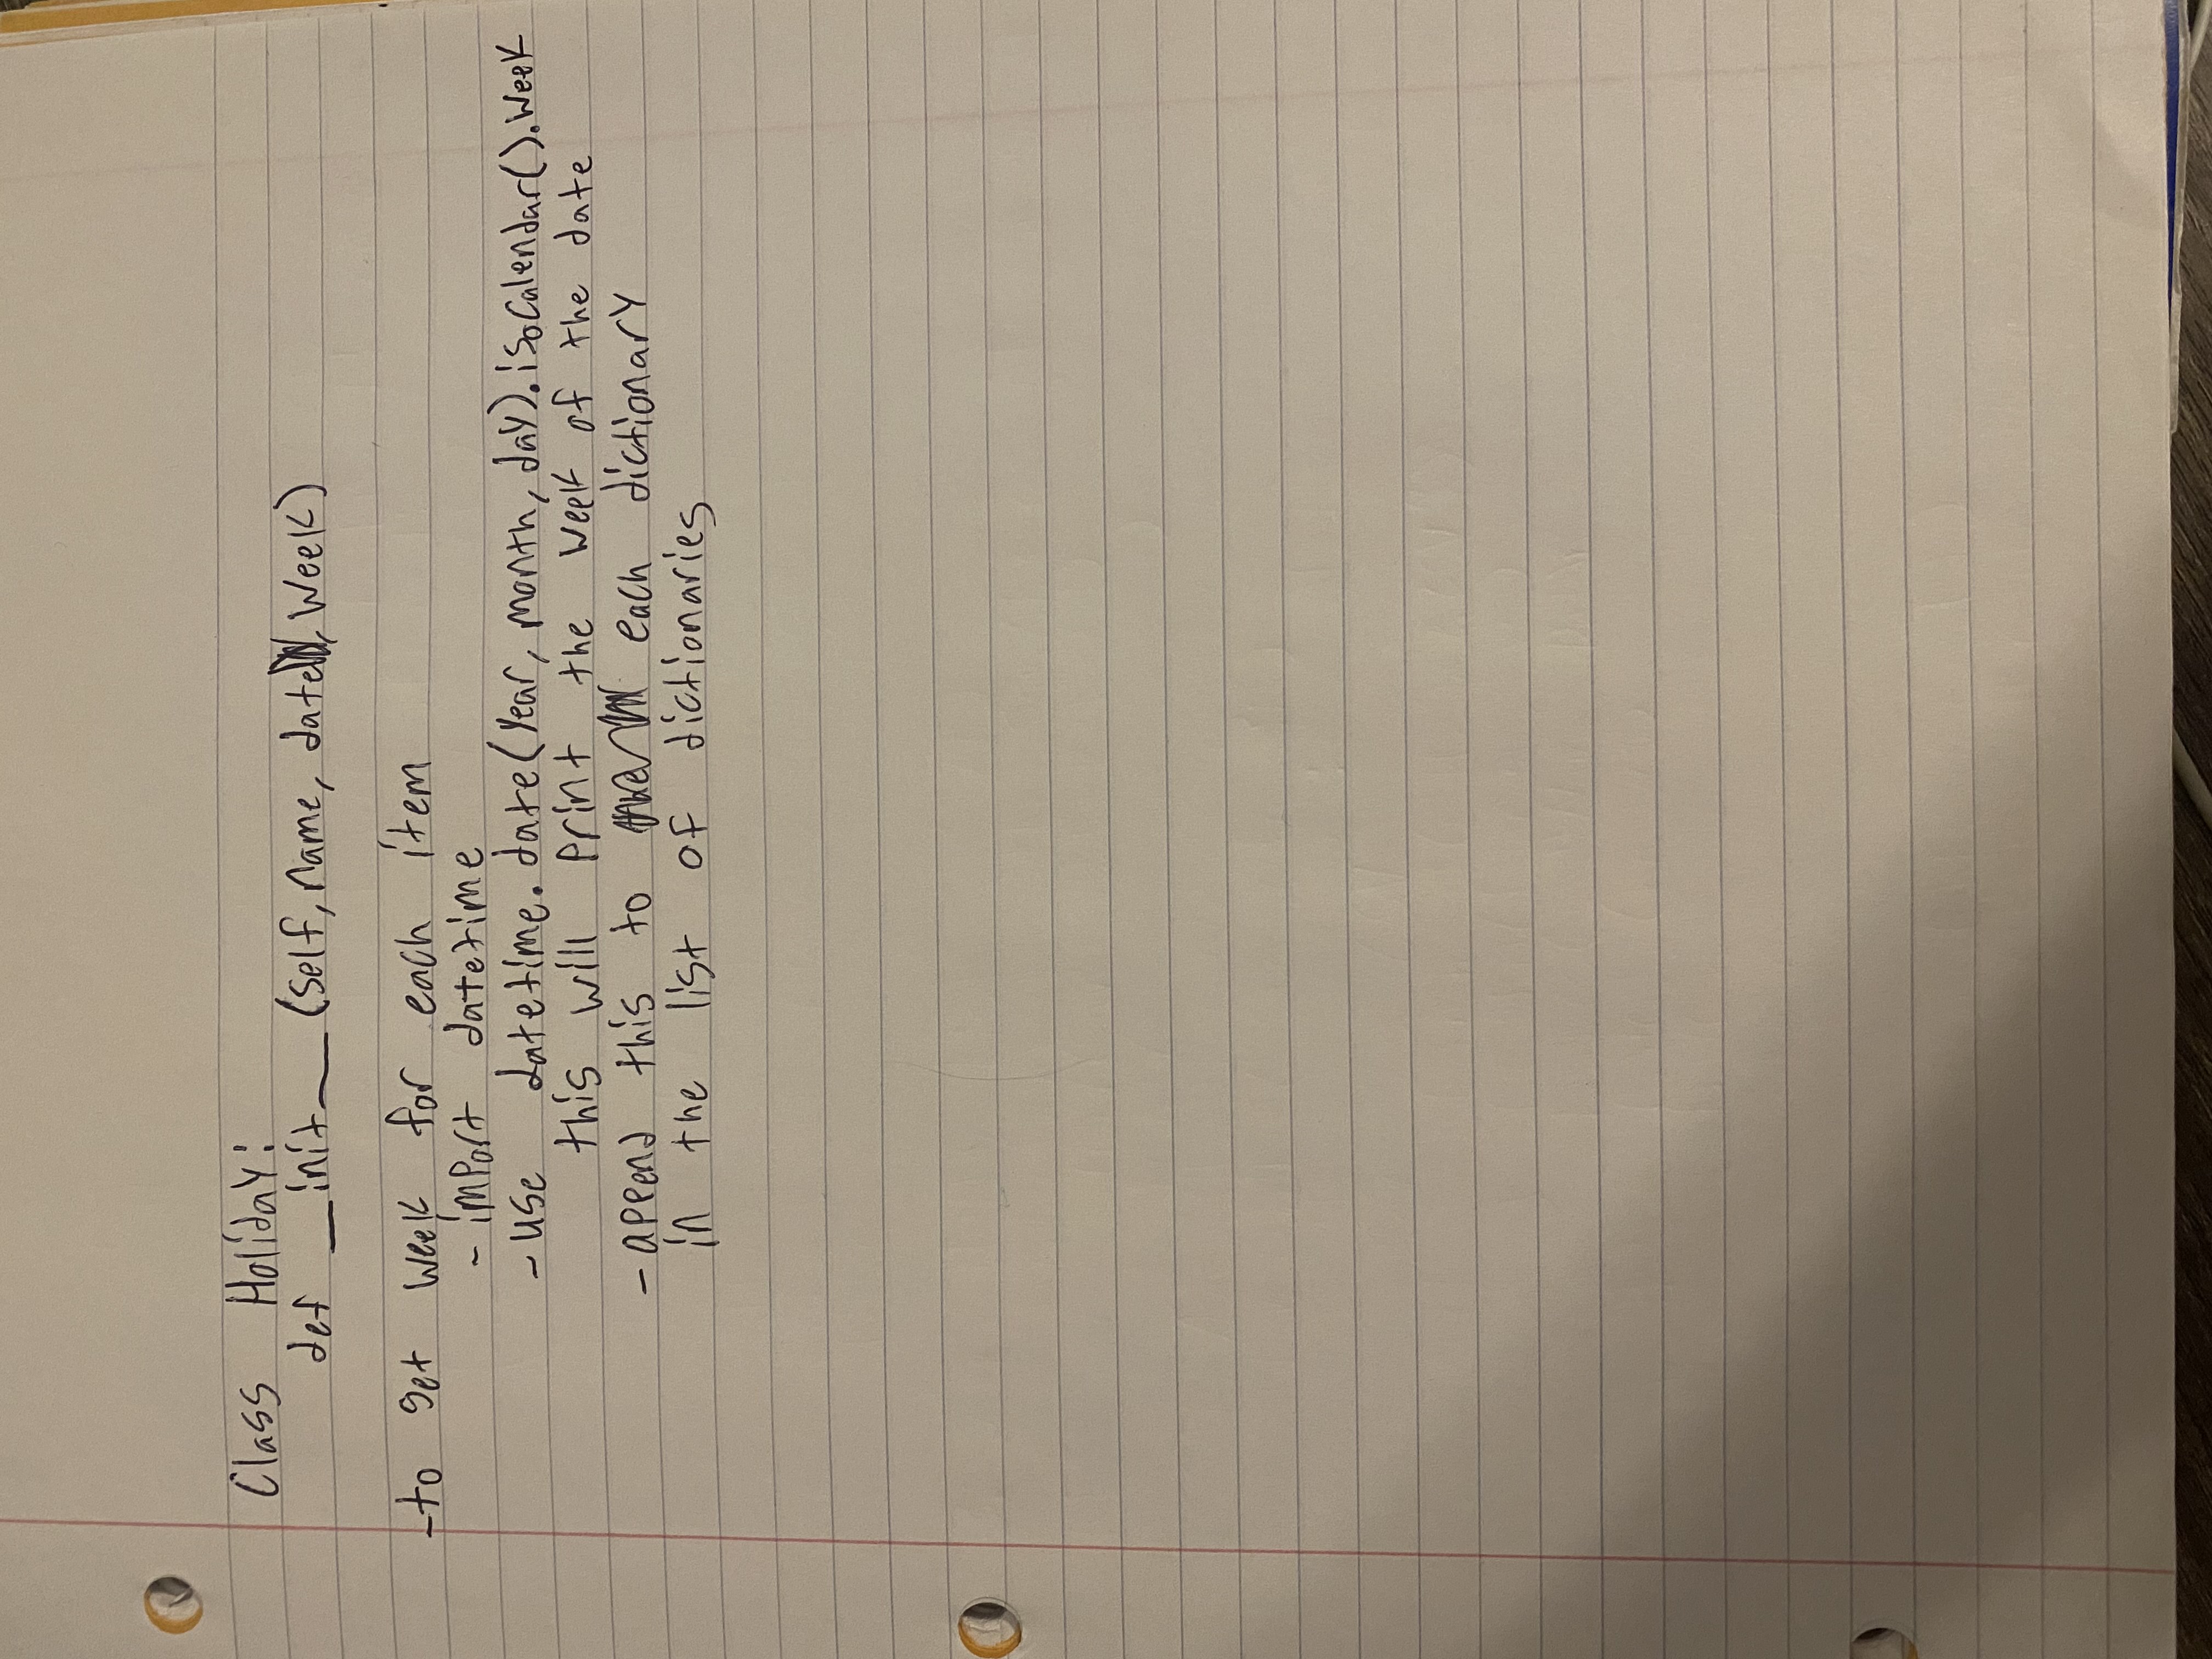 Class Holiday:
def __init__ (self, name, date, week)
-to get week for each item
- import datetime
- use datetime.date(year, month, day).isocalendar().week
this will print the week of the date
- append this to each dictionary
in the list of dictionaries